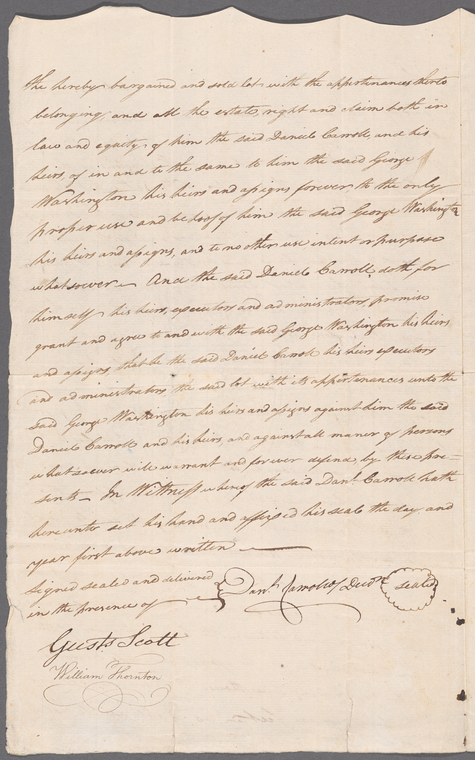 the hereby bargained and sold lot with the appertenances thereto
belonging and all the estate, right and claim both in
law and equity, of him the said Daniel Carroll, and his
heirs of in and to the same to him the said George
Washington his heirs and assigns forever to the only
proper use and behoof of him the said George Washington
his heirs and assigns, and to no other use intent or purpose
whatsoever — And the said Daniel Carroll, doth for
himself his heirs, executors and administrators promise
grant and agree to and with the said George Washington his heirs
and assigns, that he the said Daniel Carroll his heirs executors
and administrators the said lot with its appertenances unto the
said George Washington his heirs and assigns against him the said
Daniel Carroll and his heirs and against all maner of persons
whatsoever will warrant and forever defend by these pre=
sents — In Witness whereof the said Danl. Carroll hath
hereunto set his hand and affixed his seale the day and
year first above written
Signed sealed and delivered
in the presence of
Danl. Carroll of Dudn
seald
Scott
William Thornton